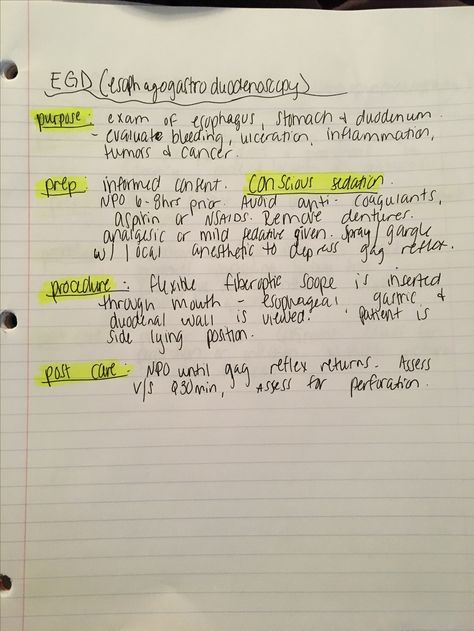 EGD (esophagogastroduodenoscopy)
purpose: exam of esophagus, stomach & duodenum.
- evaluate bleeding, ulceration, inflammation,
tumors & cancer.
prep: informed consent. conscious sedation.
NPO 6-8hrs prior. Avoid anti-coagulants,
aspirin or NSAIDS. Remove dentures.
analgesic or mild sedative given. Spray/gargle
w/ local anesthetic to depress gag reflex.
procedure: flexible fiberoptic scope is inserted
through mouth - esophageal, gastric, &
duodenal wall is viewed. patient is
side lying position.
post care: NPO until gag reflex returns. Assess
v/s Q30min, Assess for perforation.